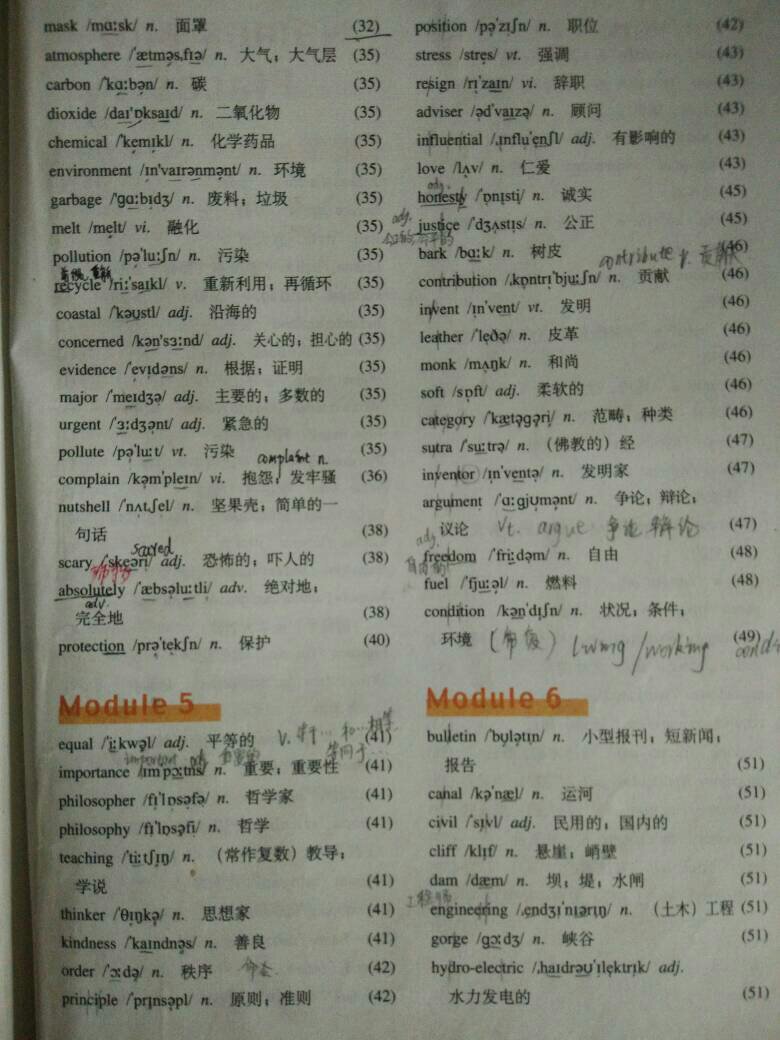 mask /mɑːsk/ n. 面罩 (32)
atmosphere /'ætməs,fɪə/ n. 大气；大气层 (35)
carbon /'kɑːbən/ n. 碳 (35)
dioxide /daɪ'ɒksaɪd/ n. 二氧化物 (35)
chemical /'kemɪkl/ n. 化学药品 (35)
environment /ɪn'vaɪrənmənt/ n. 环境 (35)
garbage /'ɡɑːbɪdʒ/ n. 废料；垃圾 (35)
melt /melt/ vi. 融化 (35)
pollution /pə'luːʃn/ n. 污染 (35)
recycle /'riː'saɪkl/ v. 重新利用；再循环 (35)
coastal /'kəʊstl/ adj. 沿海的 (35)
concerned /kən'sɜːnd/ adj. 关心的；担心的 (35)
evidence /'evɪdəns/ n. 根据；证明 (35)
major /'meɪdʒə/ adj. 主要的；多数的 (35)
urgent /'ɜːdʒənt/ adj. 紧急的 (35)
pollute /pə'luːt/ vt. 污染 (35)
complaint n.
complain /kəm'pleɪn/ vi. 抱怨；发牢骚 (36)
nutshell /'nʌt,ʃel/ n. 坚果壳；简单的一
句话 (38)
scared
scary /'skeəri/ adj. 恐怖的；吓人的 (38)
absolutely /'æbsəluːtli/ adv. 绝对地；
adv.
完全地 (38)
protection /prə'tekʃn/ n. 保护 (40)
Module 5
equal /'iːkwəl/ adj. 平等的 (41)
V. 等于… 和…相等
等同于…
important adj. 重要的
importance /ɪmˈpɔːtns/ n. 重要；重要性 (41)
philosopher /fɪ'lɒsəfə/ n. 哲学家 (41)
philosophy /fɪ'lɒsəfi/ n. 哲学 (41)
teaching /'tiːtʃɪŋ/ n. （常作复数）教导；
学说 (41)
thinker /'θɪŋkə/ n. 思想家 (41)
kindness /'kaɪndnəs/ n. 善良 (41)
order /'ɔːdə/ n. 秩序 命令 (42)
principle /'prɪnsəpl/ n. 原则；准则 (42)
position /pə'zɪʃn/ n. 职位 (42)
stress /stres/ vt. 强调 (43)
resign /rɪ'zaɪn/ vi. 辞职 (43)
adviser /əd'vaɪzə/ n. 顾问 (43)
influential /,ɪnflu'enʃl/ adj. 有影响的 (43)
love /lʌv/ n. 仁爱 (43)
adj.
honesty /'ɒnɪsti/ n. 诚实 (45)
adj.
justice /'dʒʌstɪs/ n. 公正 (45)
公正的，公平的
bark /bɑːk/ n. 树皮 (46)
contribute v. 贡献
contribution /,kɒntrɪ'bjuːʃn/ n. 贡献 (46)
invent /ɪn'vent/ vt. 发明 (46)
leather /'leðə/ n. 皮革 (46)
monk /mʌŋk/ n. 和尚 (46)
soft /sɒft/ adj. 柔软的 (46)
category /'kætəɡəri/ n. 范畴；种类 (46)
sutra /'suːtrə/ n. （佛教的）经 (47)
inventor /ɪn'ventə/ n. 发明家 (47)
argument /'ɑːɡjʊmənt/ n. 争论；辩论；
议论 Vt. argue 争论 辩论 (47)
adj.
freedom /'friːdəm/ n. 自由 (48)
fuel /'fjuːəl/ n. 燃料 (48)
condition /kən'dɪʃn/ n. 状况；条件；
环境 (常复) living/working (49)
Module 6
bulletin /'bʊlətɪn/ n. 小型报刊；短新闻；
报告 (51)
canal /kə'næl/ n. 运河 (51)
civil /'sɪvl/ adj. 民用的；国内的 (51)
cliff /klɪf/ n. 悬崖；峭壁 (51)
dam /dæm/ n. 坝；堤；水闸 (51)
工程师
engineering /,endʒɪ'nɪərɪŋ/ n. （土木）工程 (51)
gorge /ɡɔːdʒ/ n. 峡谷 (51)
hydro-electric /,haɪdrəʊ'ɪlektrɪk/ adj.
水力发电的 (51)